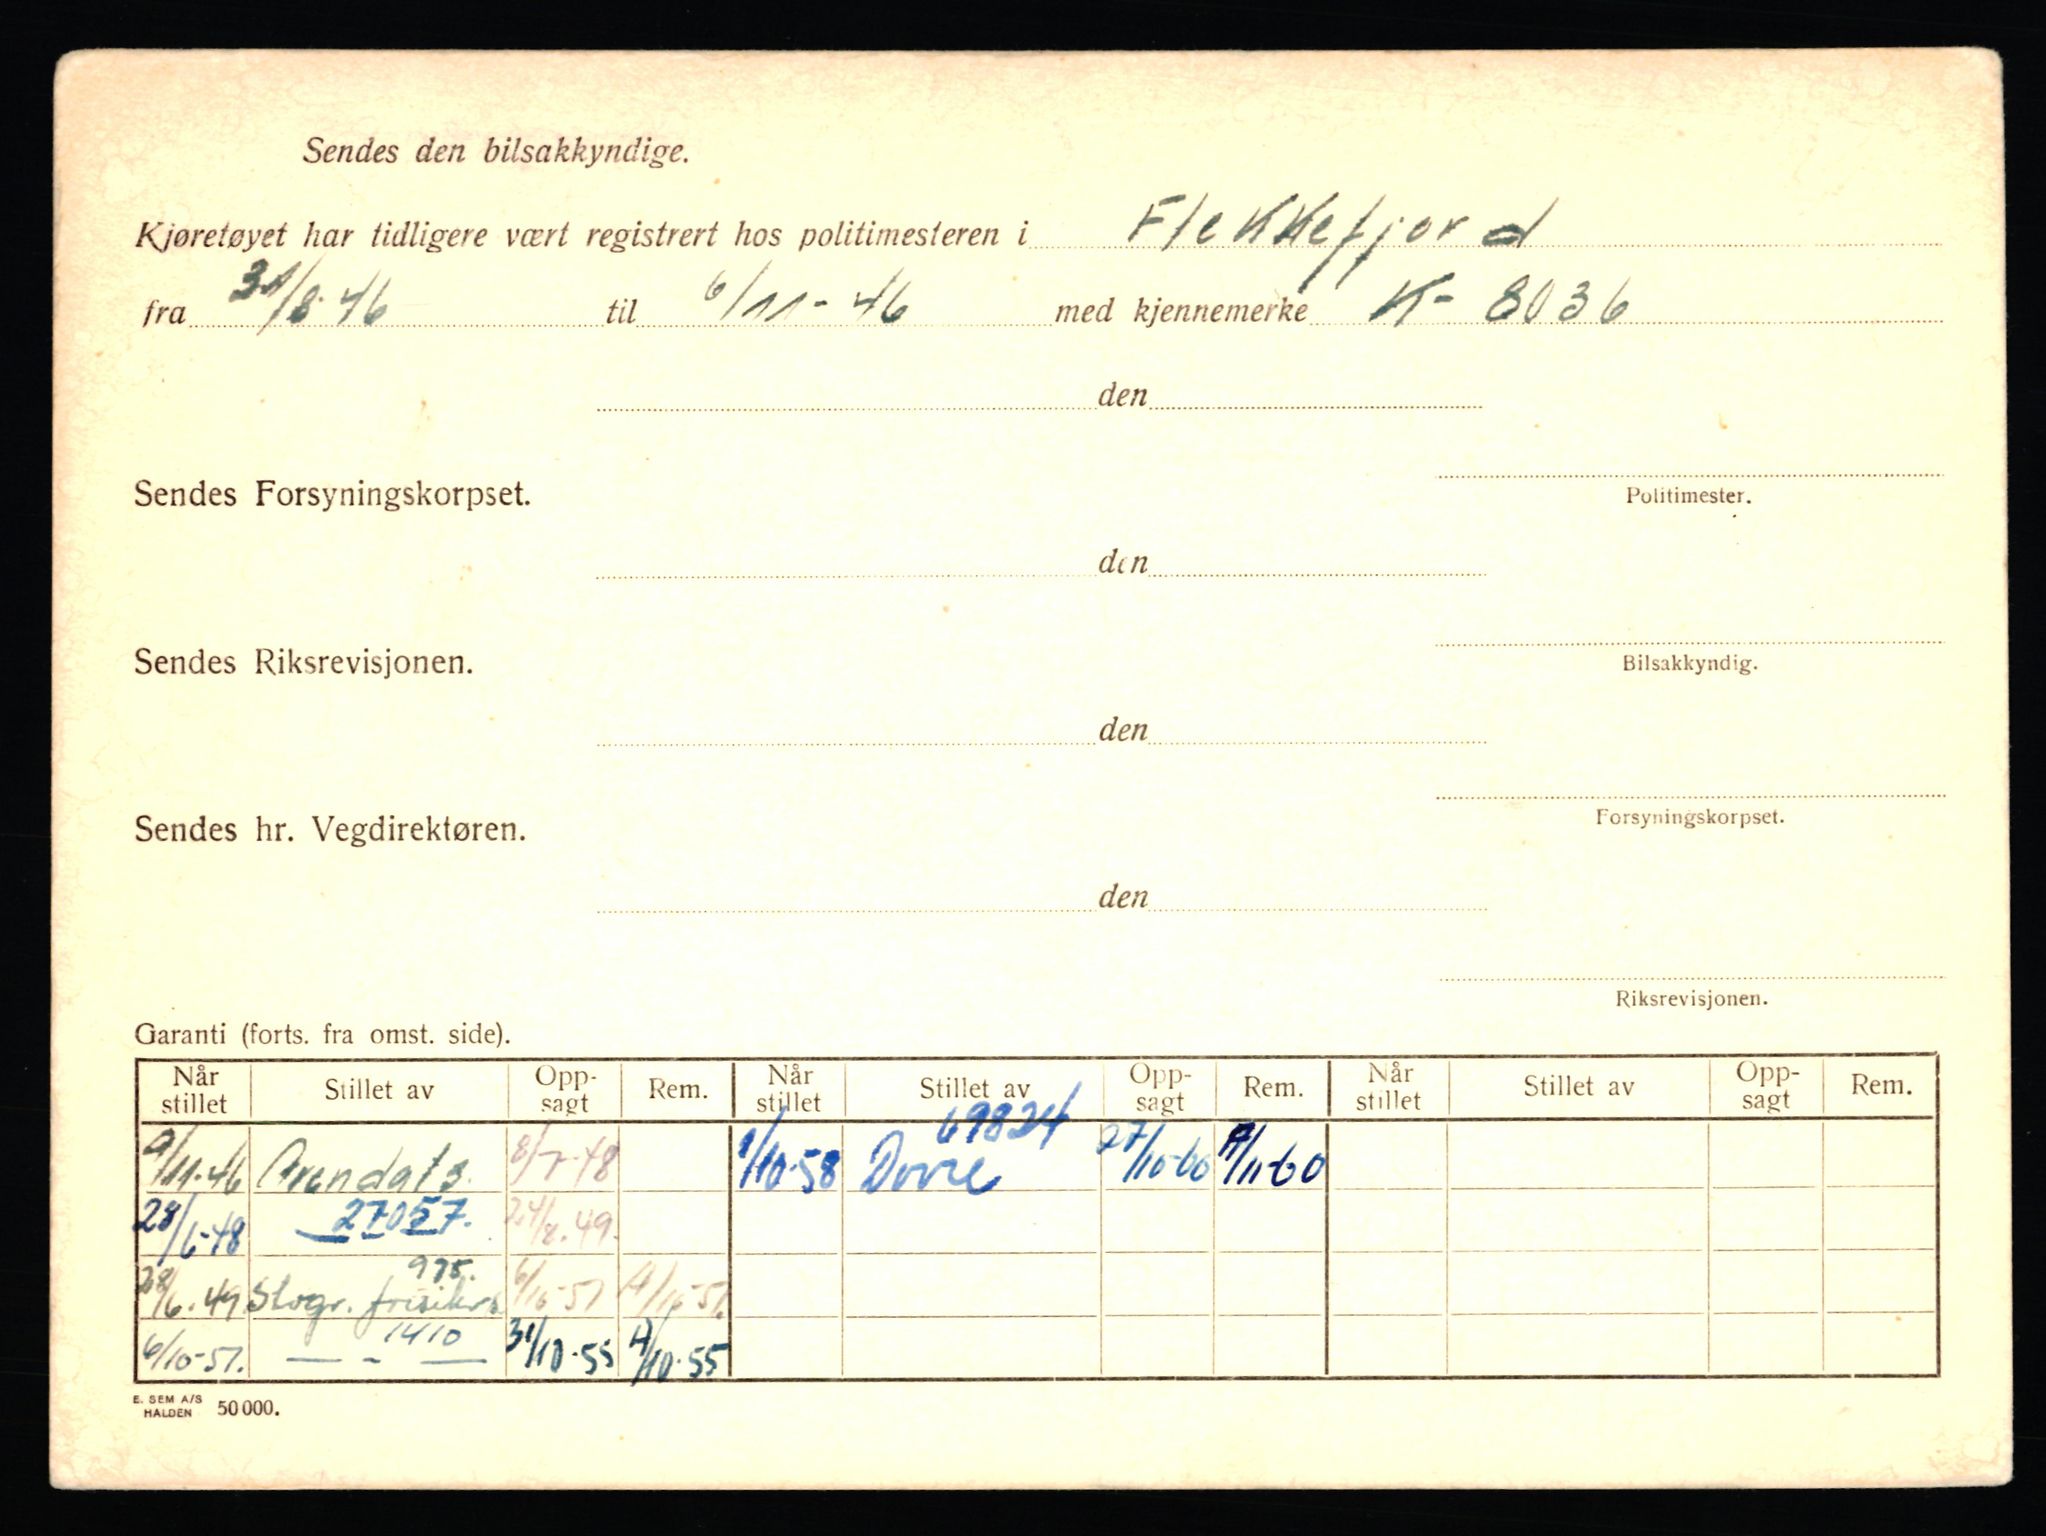 Sendes den bilsakkyndige.
Kjøretøyet har tidligere vært registrert hos politimesteren i Flekkefjord
fra 31/8-46 til 6/11-46 med kjennemerke K-8036
den
Politimester.
Sendes Forsyningskorpset.
den
Bilsakkyndig.
Sendes Riksrevisjonen.
den
Forsyningskorpset.
Sendes hr. Vegdirektøren.
den
Riksrevisjonen.
Garanti (forts. fra omst. side).
Når stillet Stillet av Opp-sagt Rem. Når stillet Stillet av Opp-sagt Rem. Når stillet Stillet av Opp-sagt Rem.
69824
/11-46 Arendals 8/7-48 1/10-58 Dovre 27/10-60 /11-60
28/6-48 — 27057. 24/8.49.
975.
28/6.49. Storgr. 6/10-51 /10-51.
1410
6/10-51. — - — 31/10-55 /10-55
E. SEM A/S
HALDEN 50000.